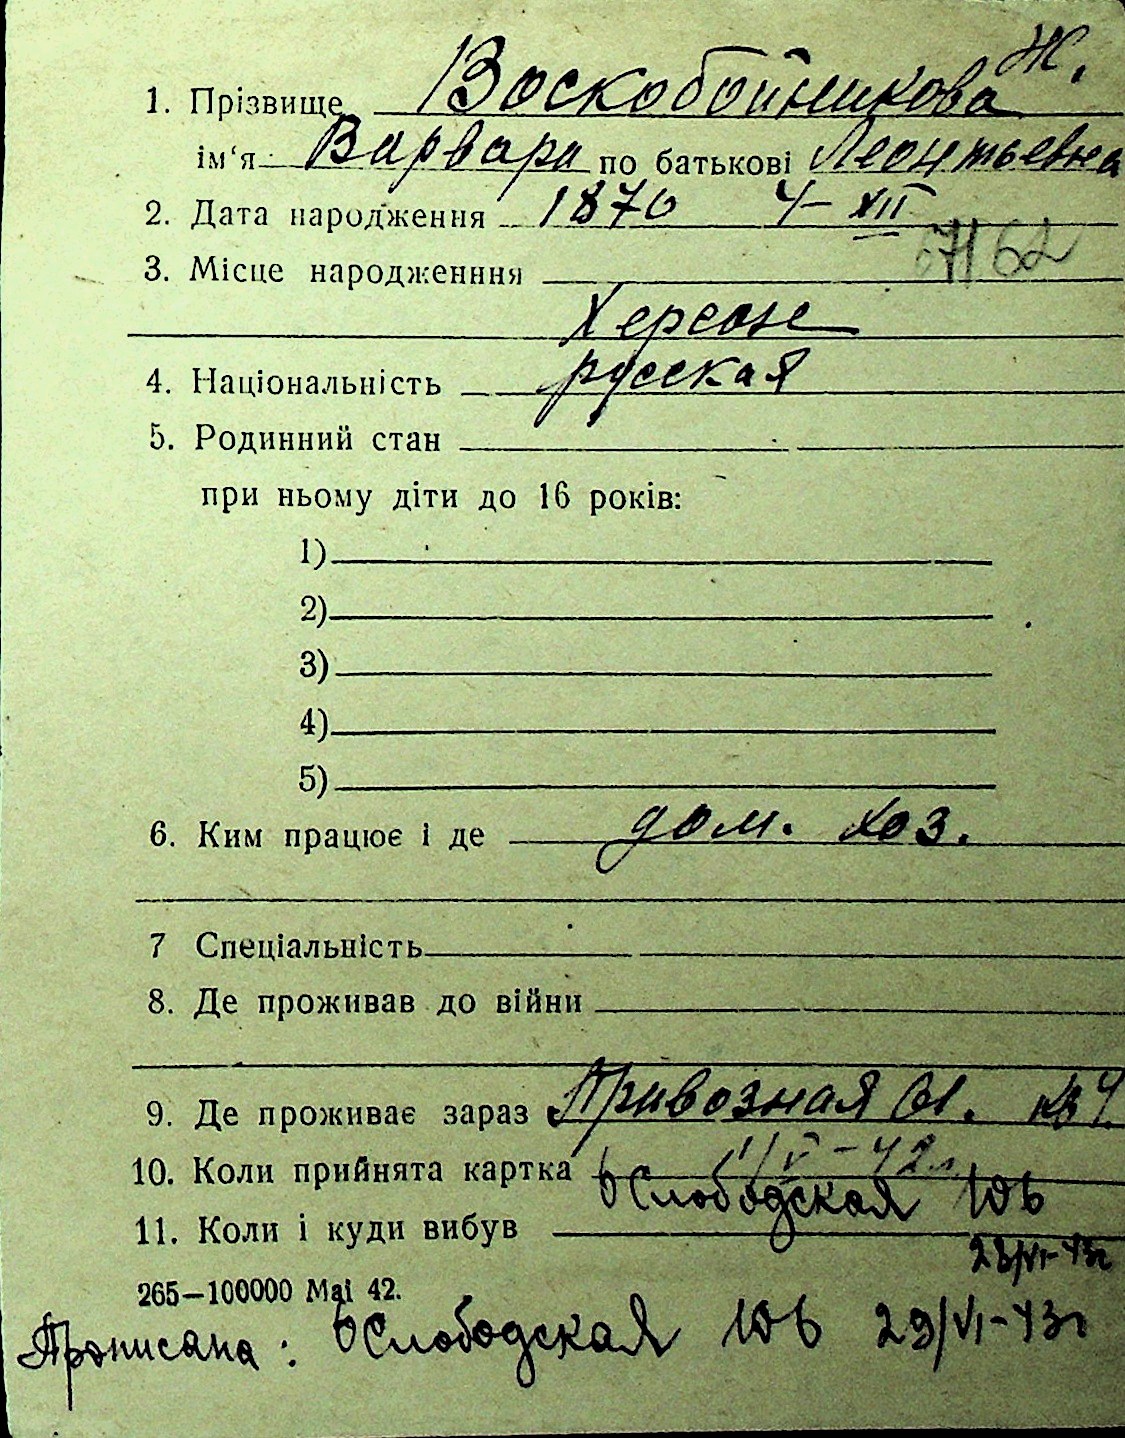 Ж.
1. Прізвище Воскобойникова
ім‘я Варвара по батькові Леонтьевна
2. Дата народження 1870 4-XII
3. Місце народженння 62
Херсоне
4. Національність русская
5. Родинний стан
при ньому діти до 16 років:
1)
2)
3)
4)
5)
6. Ким працює і де дом. хоз.
7 Спеціальність
8. Де проживав до війни
9. Де проживає зараз Привозная 61. кв 4.
10. Коли прийнята картка 1/V-42г.
11. Коли і куди вибув 6 Слободская 10в
23/VI-43г
265—100000 Маі 42.
Прописана: 6 Слободская 10в 23/VI-43г